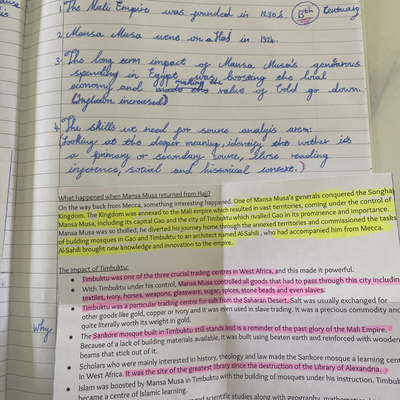 1. The Mali Empire was founded in 1230s. 13th Century
2. Mansa Musa wens on a Had in 1324.
3. The long term impact of Mansa Musa's generous
spending in Egypt was boosting the loral
economy and making the value of Gold go down.
(Inglawn increased)
4. The skills we need for source analyis arem:
Looking at the deeper meaning, identify the wether its
a primary or secondary source, close reading
inference, social and historical context.)
What happened when Mansa Musa returned from Hajj?
On the way back from Mecca, something interesting happened. One of Mansa Musa's generals conquered the Songhai
Kingdom. The Kingdom was annexed to the Mali Empire which resulted in vast territories, coming under the control of
Mansa Musa, including its capital Gao and the city of Timbuktu which rivalled Gao in its prominence and importance.
Mansa Musa was so thrilled, he diverted his journey home through the annexed territories and commissioned the tasks
of building mosques in Gao and Timbuktu to an architect named Al-Sahili, who had accompanied him from Mecca.
Al-Sahili brought new knowledge and innovation to the empire.
The impact of Timbuktu:
• Timbuktu was one of the three crucial trading centres in West Africa, and this made it powerful.
• With Timbuktu under his control, Mansa Musa controlled all goods that had to pass through this city includin
textiles, ivory, horses, weapons, glassware, sugar, spices, stone beads and even slaves.
• Timbuktu was a particular trading centre for salt from the Saharan Desert. Salt was usually exchanged for
other goods like gold, copper or ivory and it was even used in slave trading. It was a precious commodity an
quite literally worth its weight in gold.
Why
• The Sankore mosque built in Timbuktu still stands and is a reminder of the past glory of the Mali Empire.
Because of a lack of building materials available, it was built using beaten earth and reinforced with wooden
beams that stick out of it.
• Scholars who were mainly interested in history, theology and law made the Sankore mosque a learning cent
in West Africa. It was the site of the greatest library since the destruction of the Library of Alexandria.
• Islam was boosted by Mansa Musa in Timbuktu with the building of mosques under his instruction. Timbuk
became a centre of Islamic learning.
scientific studies along with geography, mathematics